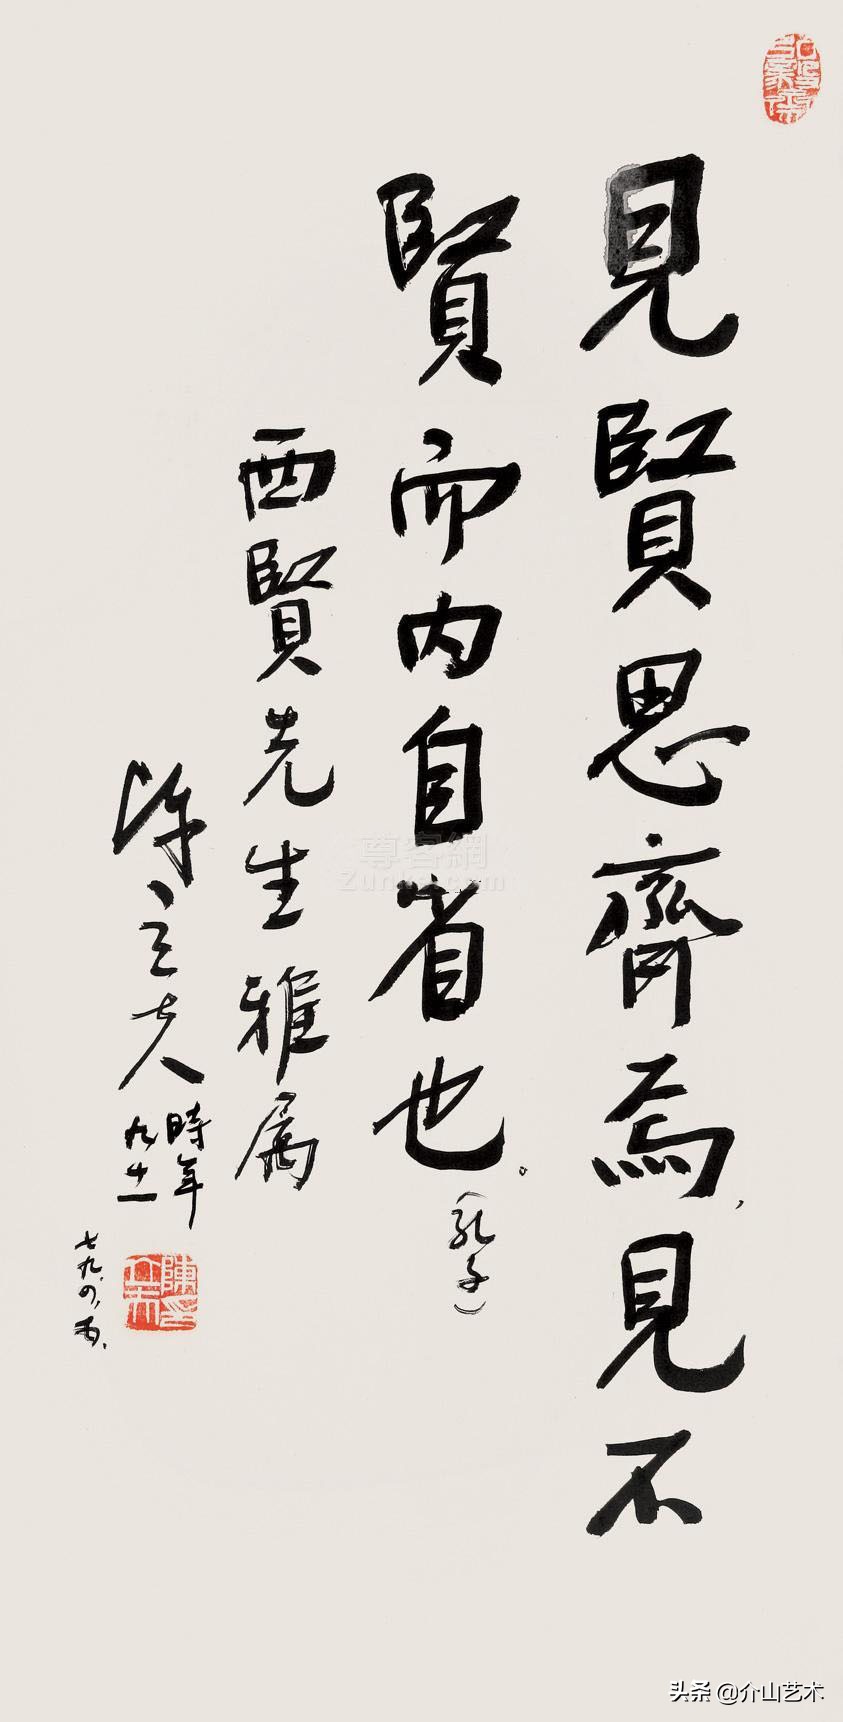 見賢思齊焉，見不
賢而内自省也。（孔子）
西賢先生雅属
陳立夫
時年
九十一
七九、四、
陳立夫印
尊客網
头条 @介山艺术